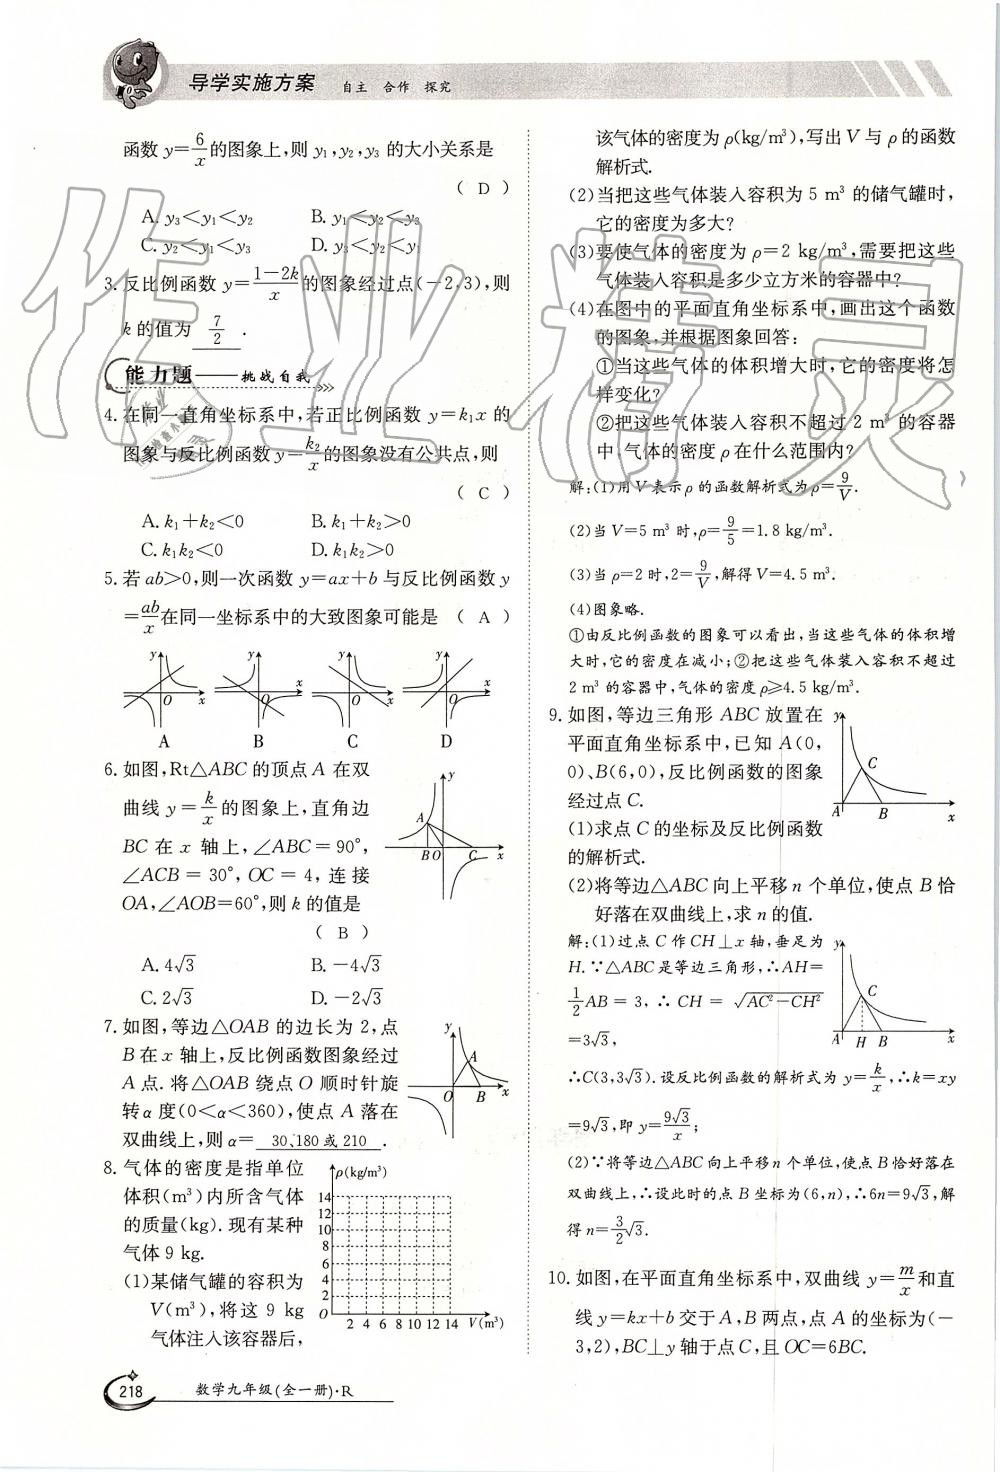 导学实施方案 自主 合作 探究
函数 y=6/x 的图象上,则 y₁,y₂,y₃ 的大小关系是
( D )
A. y₃<y₁<y₂ B. y₁<y₂<y₃
C. y₂<y₁<y₃ D. y₃<y₂<y₁
3. 反比例函数 y=(1-2k)/x 的图象经过点(-2,3),则
k 的值为 7/2 .
能力题——挑战自我
4. 在同一直角坐标系中,若正比例函数 y=k₁x 的
图象与反比例函数 y=k₂/x 的图象没有公共点,则
( C )
A. k₁+k₂<0 B. k₁+k₂>0
C. k₁k₂<0 D. k₁k₂>0
5. 若 ab>0,则一次函数 y=ax+b 与反比例函数 y
=ab/x 在同一坐标系中的大致图象可能是 ( A )
y y y y
O x O x O x O x
A B C D
6. 如图,Rt△ABC 的顶点 A 在双
曲线 y=k/x 的图象上,直角边
BC 在 x 轴上,∠ABC=90°,
∠ACB=30°,OC=4,连接
OA,∠AOB=60°,则 k 的值是
( B )
y
A
B O C x
A. 4√3 B. -4√3
C. 2√3 D. -2√3
7. 如图,等边△OAB 的边长为 2,点
B 在 x 轴上,反比例函数图象经过
A 点. 将△OAB 绕点 O 顺时针旋
转 α 度(0<α<360),使点 A 落在
双曲线上,则 α= 30、180 或 210 .
y
A
O B x
8. 气体的密度是指单位
体积(m³)内所含气体
的质量(kg). 现有某种
气体 9 kg.
(1)某储气罐的容积为
V(m³),将这 9 kg
气体注入该容器后,
ρ(kg/m³)
14
12
10
8
6
4
2
O 2 4 6 8 10 12 14 V(m³)
218 数学九年级(全一册)·R
该气体的密度为 ρ(kg/m³),写出 V 与 ρ 的函数
解析式.
(2)当把这些气体装入容积为 5 m³ 的储气罐时,
它的密度为多大?
(3)要使气体的密度为 ρ=2 kg/m³,需要把这些
气体装入容积是多少立方米的容器中?
(4)在图中的平面直角坐标系中,画出这个函数
的图象,并根据图象回答:
①当这些气体的体积增大时,它的密度将怎
样变化?
②把这些气体装入容积不超过 2 m³ 的容器
中,气体的密度 ρ 在什么范围内?
解:(1)用 V 表示 ρ 的函数解析式为 ρ=9/V.
(2)当 V=5 m³ 时,ρ=9/5=1.8 kg/m³.
(3)当 ρ=2 时,2=9/V,解得 V=4.5 m³.
(4)图象略.
①由反比例函数的图象可以看出,当这些气体的体积增
大时,它的密度在减小;②把这些气体装入容积不超过
2 m³ 的容器中,气体的密度 ρ⩾4.5 kg/m³.
9. 如图,等边三角形 ABC 放置在
平面直角坐标系中,已知 A(0,
0)、B(6,0),反比例函数的图象
经过点 C.
y
C
A B x
(1)求点 C 的坐标及反比例函数
的解析式.
(2)将等边△ABC 向上平移 n 个单位,使点 B 恰
好落在双曲线上,求 n 的值.
解:(1)过点 C 作 CH⊥x 轴,垂足为
H. ∵△ABC 是等边三角形,∴AH=
1/2 AB=3,∴CH=√(AC²-CH²)
=3√3,
y
C
A H B x
∴C(3,3√3). 设反比例函数的解析式为 y=k/x,∴k=xy
=9√3,即 y=9√3/x;
(2)∵将等边△ABC 向上平移 n 个单位,使点 B 恰好落在
双曲线上,∴设此时的点 B 坐标为(6,n),∴6n=9√3,解
得 n=3/2 √3.
10. 如图,在平面直角坐标系中,双曲线 y=m/x 和直
线 y=kx+b 交于 A,B 两点,点 A 的坐标为(-
3,2),BC⊥y 轴于点 C,且 OC=6BC.
作业精灵